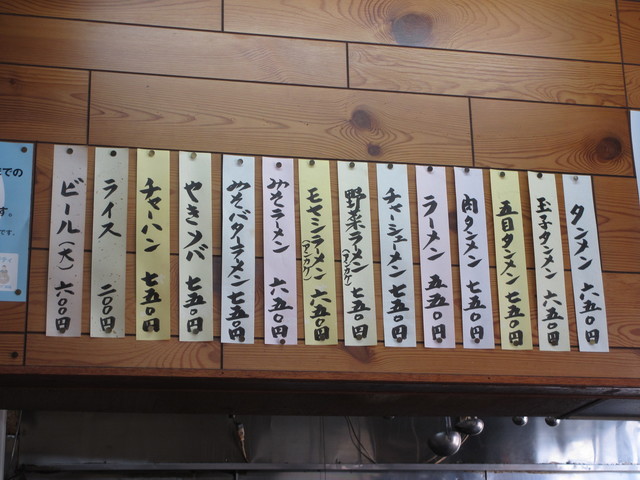 タンメン 六五〇円
玉子タンメン 六五〇円
五目タンメン 七五〇円
肉タンメン 七五〇円
ラーメン 五五〇円
チャーシューメン 七五〇円
野菜ラーメン(アンカケ) 七五〇円
モヤシラーメン(アンカケ) 六五〇円
みそラーメン 六五〇円
みそバターラーメン 七五〇円
やきソバ 七五〇円
チャーハン 七五〇円
ライス 二〇〇円
ビール(大) 六〇〇円
での
す。
です。